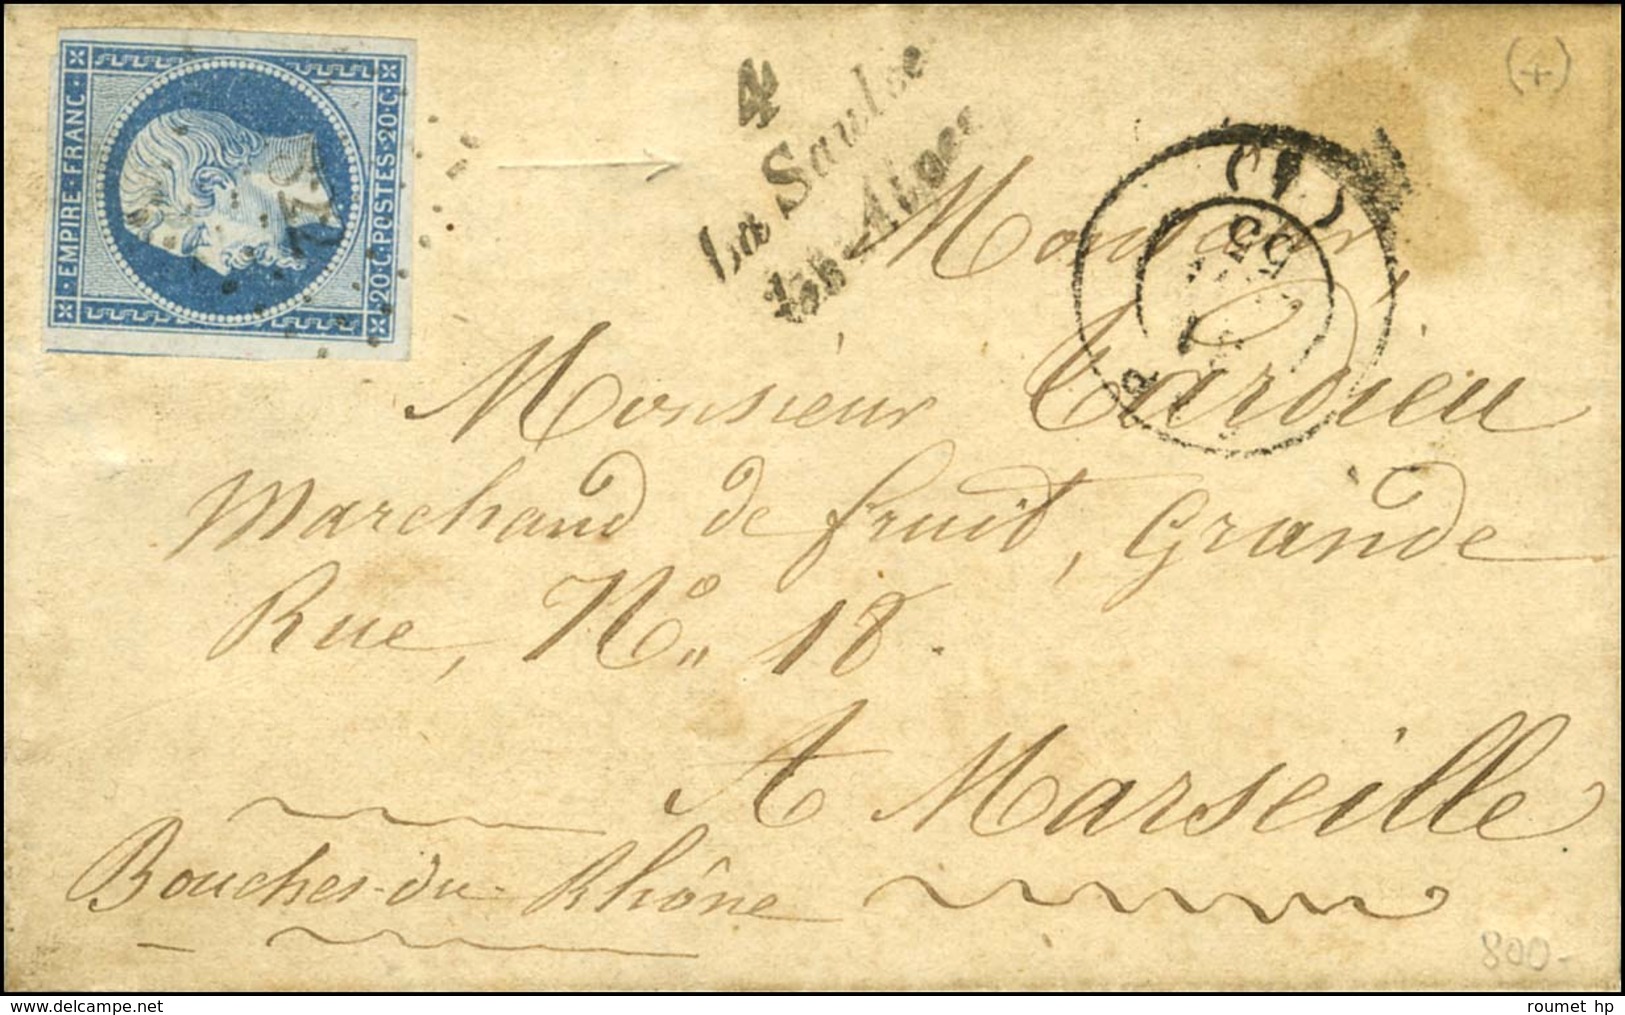 EMPIRE · FRANC ·
20 · C · POSTES · 20 · C ·
4
La Saulce
(+)
(4)
55
1
Monsieur,
Monsieur Tardieu
Marchand de fruit, Grande
Rue, N° 18.
A Marseille
Bouches-du-Rhône
800-
roumet hp